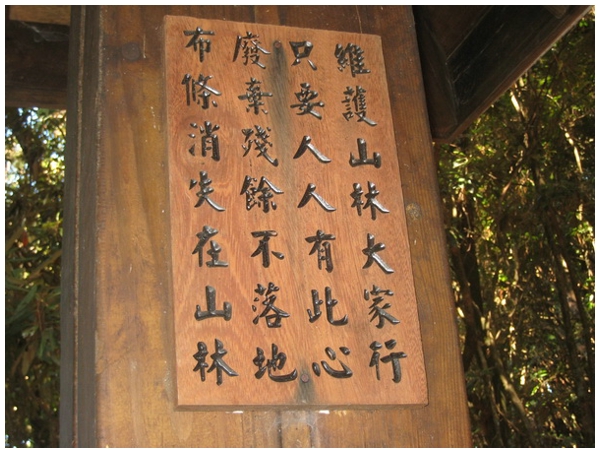 維護山林大家行
只要人人有此心
廢棄殘餘不落地
布條消失在山林